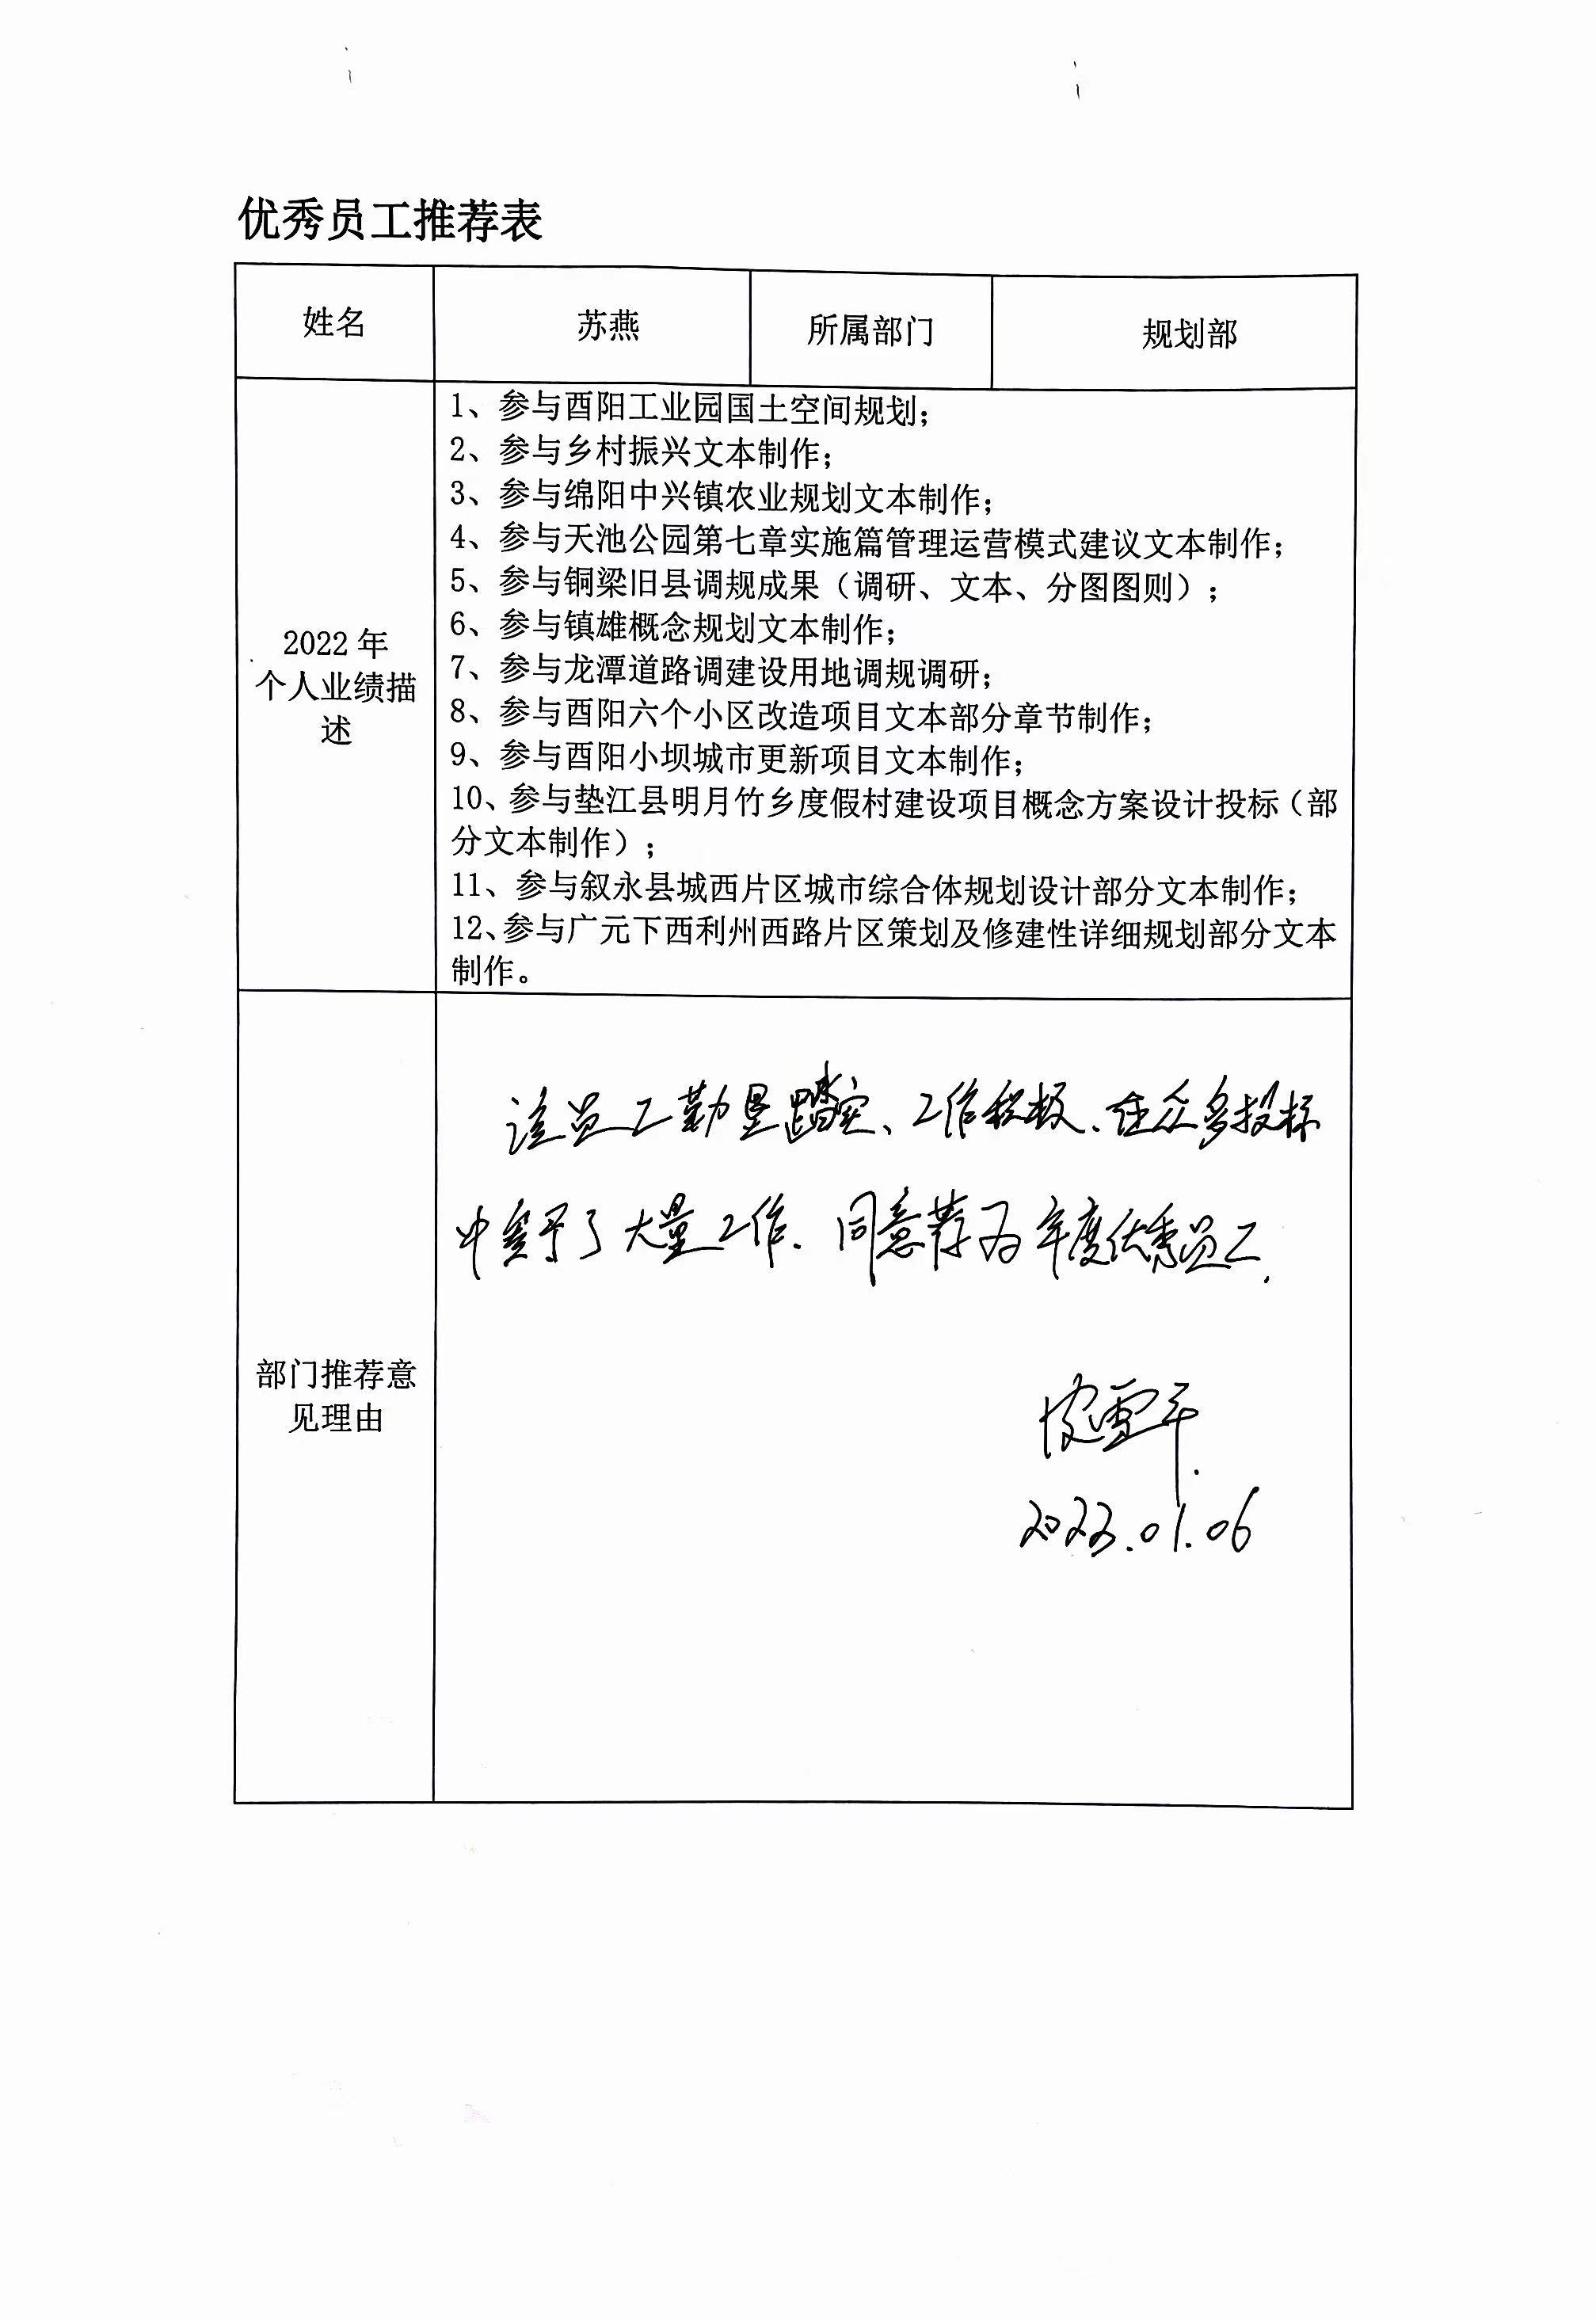 优秀员工推荐表
姓名 苏燕 所属部门 规划部
2022年
个人业绩描
述
1、参与酉阳工业园国土空间规划；
2、参与乡村振兴文本制作；
3、参与绵阳中兴镇农业规划文本制作；
4、参与天池公园第七章实施篇管理运营模式建议文本制作；
5、参与铜梁旧县调规成果（调研、文本、分图图则）；
6、参与镇雄概念规划文本制作；
7、参与龙潭道路调建设用地调规调研；
8、参与酉阳六个小区改造项目文本部分章节制作；
9、参与酉阳小坝城市更新项目文本制作；
10、参与垫江县明月竹乡度假村建设项目概念方案设计投标（部
分文本制作）；
11、参与叙永县城西片区城市综合体规划设计部分文本制作；
12、参与广元下西利州西路片区策划及修建性详细规划部分文本
制作。
部门推荐意
见理由
该员工勤垦踏实、工作积极、在众多投标
中 了大量工作. 同意荐为年度优秀员工.
2023.01.06